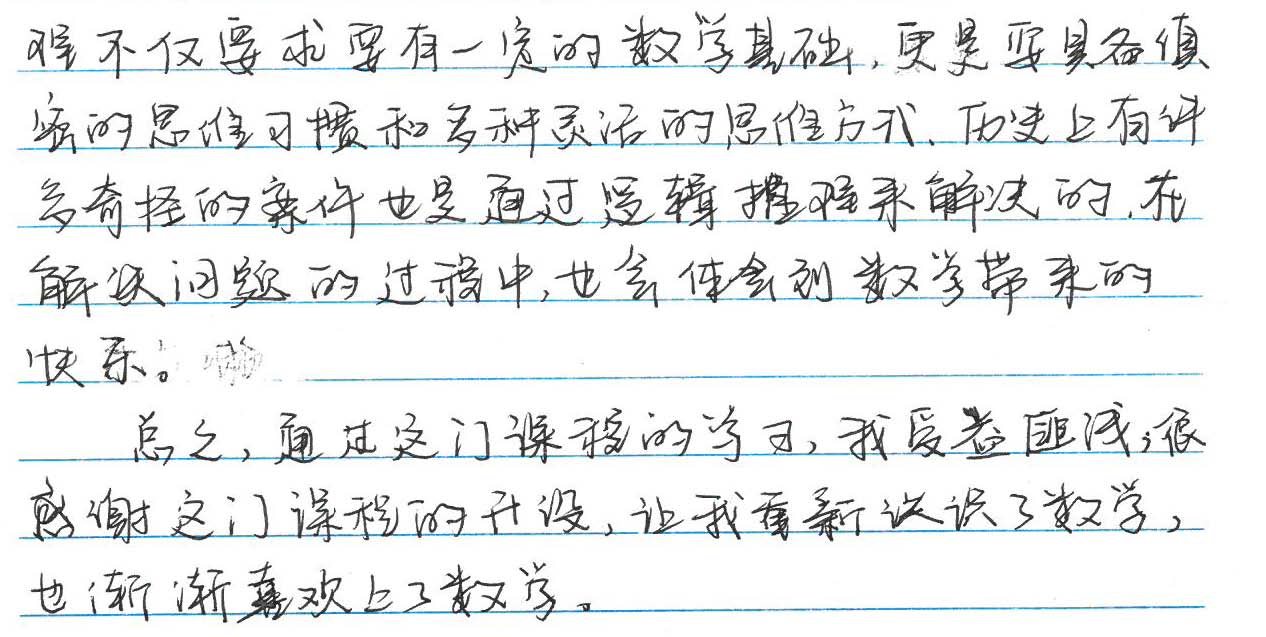 理不仅要求要有一定的数学基础,更是要具备缜
密的思维习惯和多种灵活的思维方式.历史上有许
多奇怪的案件也是通过逻辑推理来解决的.在
解决问题的过程中,也会体会到数学带来的
快乐。
总之,通过这门课程的学习,我受益匪浅,很
感谢这门课程的开设,让我重新认识了数学,
也渐渐喜欢上了数学。